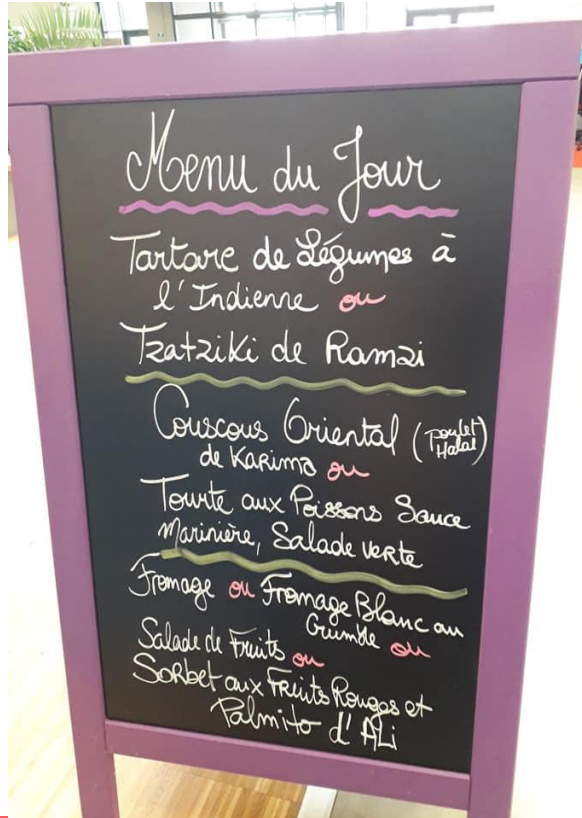 Menu du Jour
Tartare de Légumes à
l'Indienne ou
Tzatziki de Ramzi
Couscous Oriental (poulet
Halal)
de Karima ou
Tourte aux Poissons Sauce
Marinière, Salade verte
Fromage ou Fromage Blanc au
Crumble ou
Salade de Fruits ou
Sorbet aux Fruits Rouges et
Palmito d'Ali